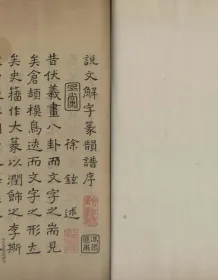 說文解字篆韻譜序
徐鉉述
昔伏羲畫八卦而文字之耑見
矣倉頡模鳥迹而文字之形立
矣史籀作大篆以潤飾之李斯